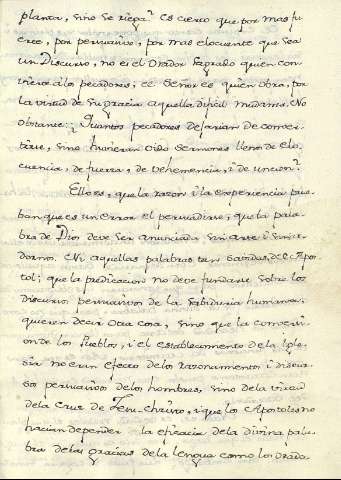 planta, sino se riega? Es cierto que por mas fu
erte, por persuasivo, por mas eloquente que sea
un Discurso, no es el Orador Sagrado quien con
vierte à los pecadores, el Señor es quien obra, por
la virtud de su gracia aquella dificil mudanza. No
obstante: ¿Quantos pecadores dejarian de conver
tirse, sino huvieran oido Sermones llenos de elo
cuencia, de fuerza, de vehemencia, i de uncion?
Ello es, que la razon i la experiencia prue
ban que es un error el persuadirse, que la pala
bra de Dios deve ser anunciada sin arte i sin a
dorno. Ni aquellas palabras tan savidas, del Apos
tol; que la predicacion no deve fundarse sobre los
discursos persuasivos de la sabiduria humana,
quieren decir otra cosa, sino que la conversi
on de los Pueblos, i el establecimiento de la Igle
sia no eran efecto de los razonamientos i discur
sos persuasivos de los hombres, sino de la virtud
de la Cruz de Jesu-Christo, i que los Apostoles no
hacian depender la eficacia de la divina pala
bra de las gracias de la lengua como los Orado